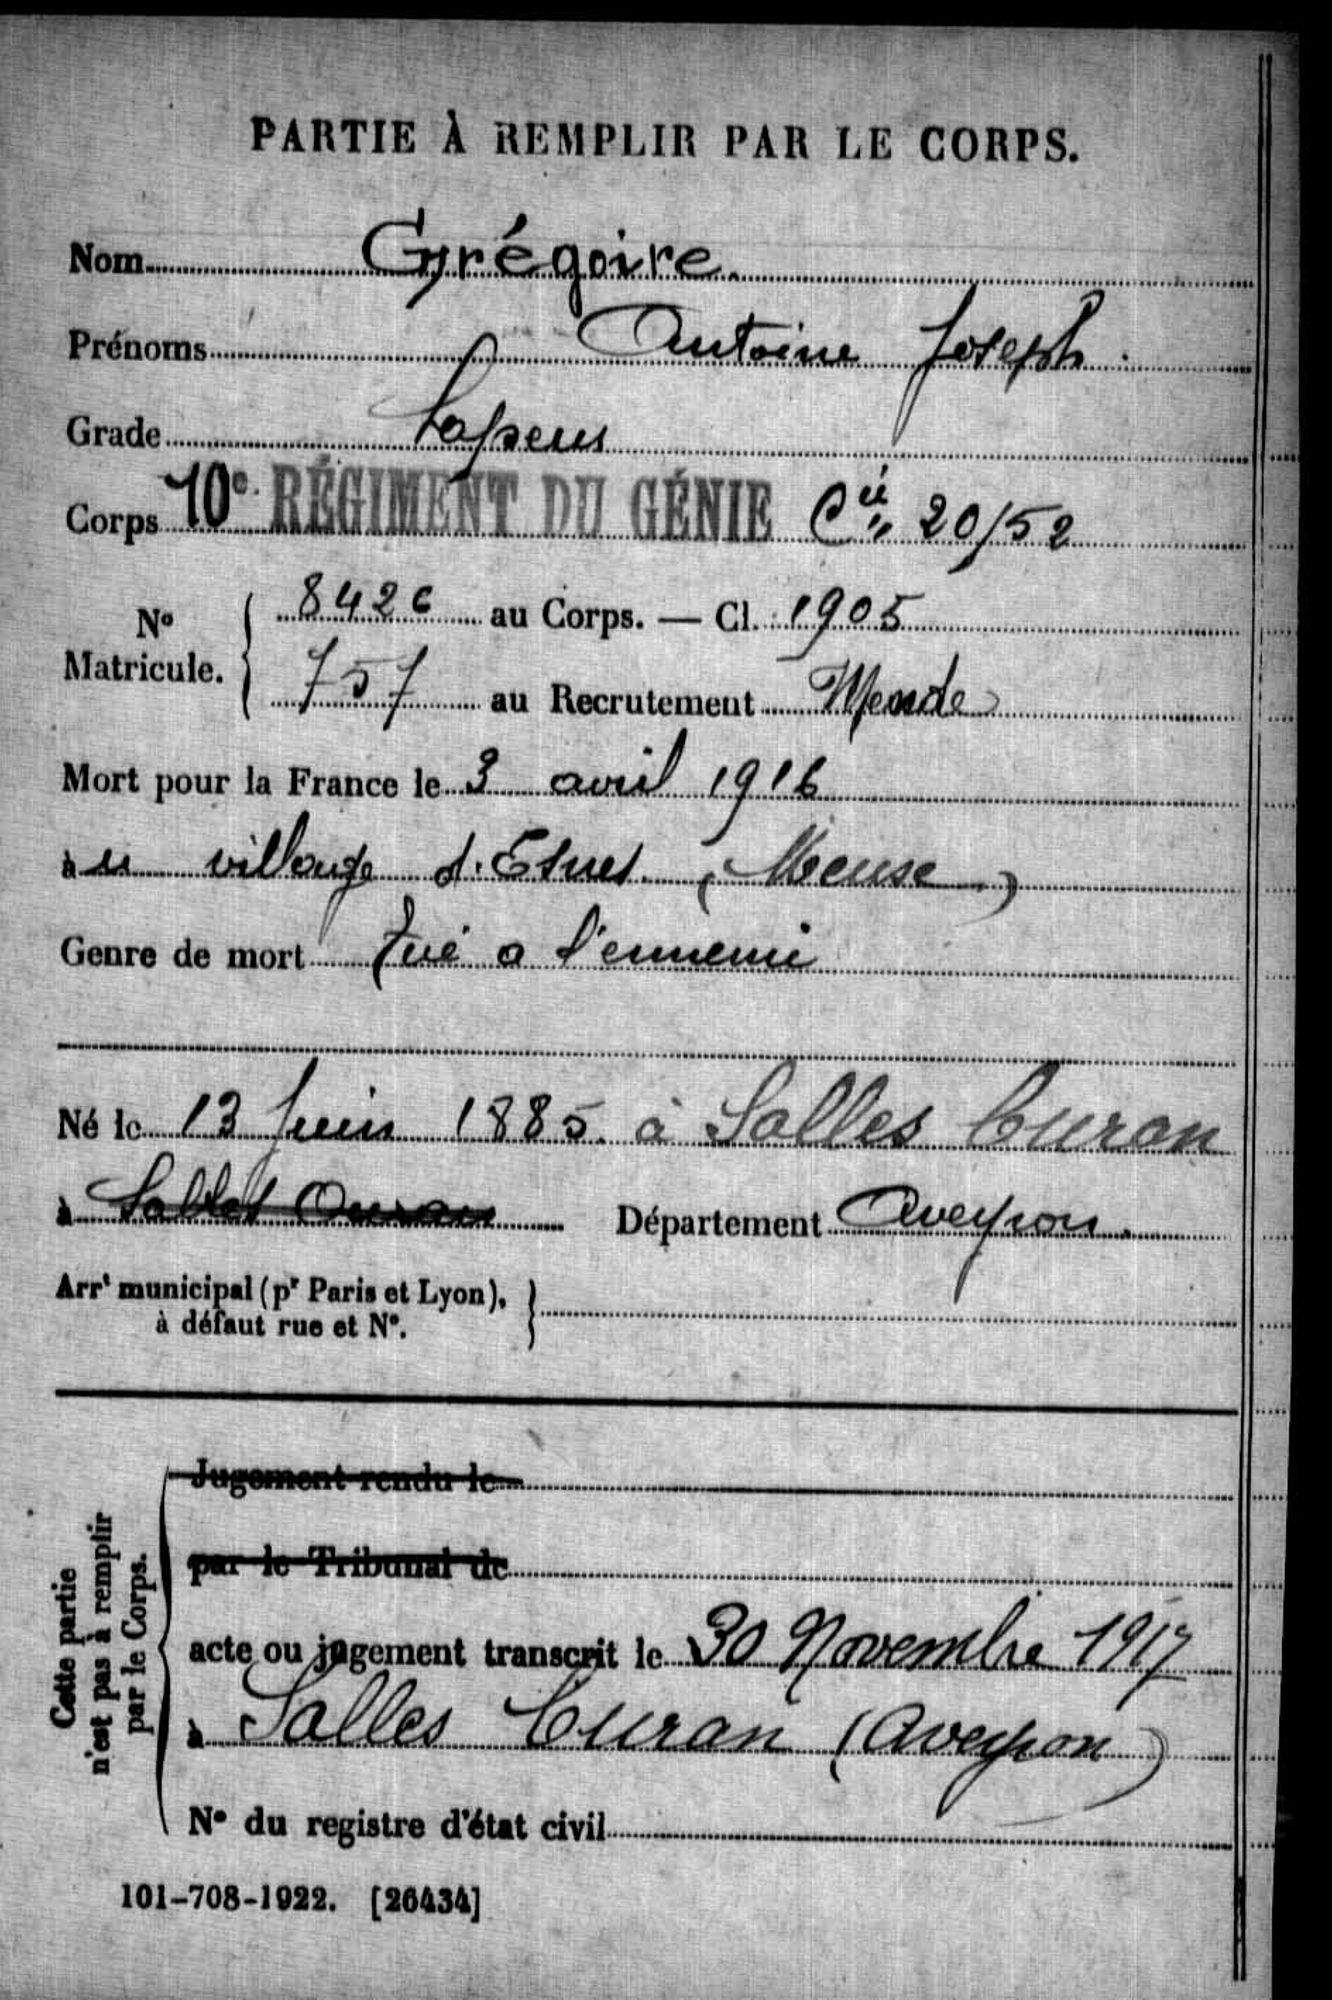 PARTIE À REMPLIR PAR LE CORPS.
Nom Grégoire.
Prénoms Antoine Joseph.
Grade Sapeur
Corps 10e. RÉGIMENT DU GÉNIE Cie 20/52
8426 au Corps. — Cl. 1905
No Matricule.
757 au Recrutement Mende
Mort pour la France le 3 avril 1916
à village d'Esnes (Meuse)
Genre de mort Tué a l'ennemi
Né le 13 Juin 1885. à Salles Curan
à Salles Curan Département Aveyron.
Arrt municipal (pr Paris et Lyon),
à défaut rue et No.
Cette partie
n'est pas à remplir
par le Corps.
Jugement rendu le
par le Tribunal de
acte ou jugement transcrit le 30 Novembre 1917
à Salles Curan (Aveyron)
No du registre d'état civil
101-708-1922. [26434]